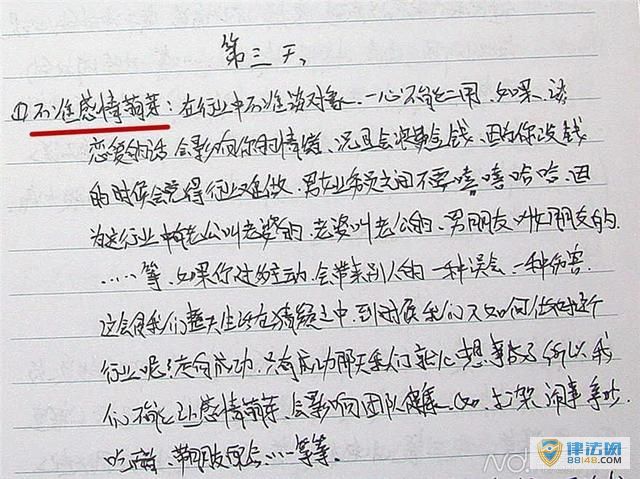 第三天
①不准感情萌芽：在行业中不准谈对象、一心不能二用、如果、谈
恋爱的话会影响你的情绪、况且会浪费金钱、因为你没钱
的时候会觉得行业难做、男女业务员之间不要嘻嘻哈哈、因
为这行业中有老公叫老婆的、老婆叫老公的、男朋友叫女朋友的.
……等、如果你过的主动、会带来别人的一种误会、一种伤害.
这会使我们整天生活在猜疑之中、到时候我们又如何住和这个
行业呢？走向成功、只有成功那天我们就心想事成了所以我
们不能让感情萌芽、会影响团队 如、打架闹事
吃醋、等等.
律法网
88148.COM
NO.